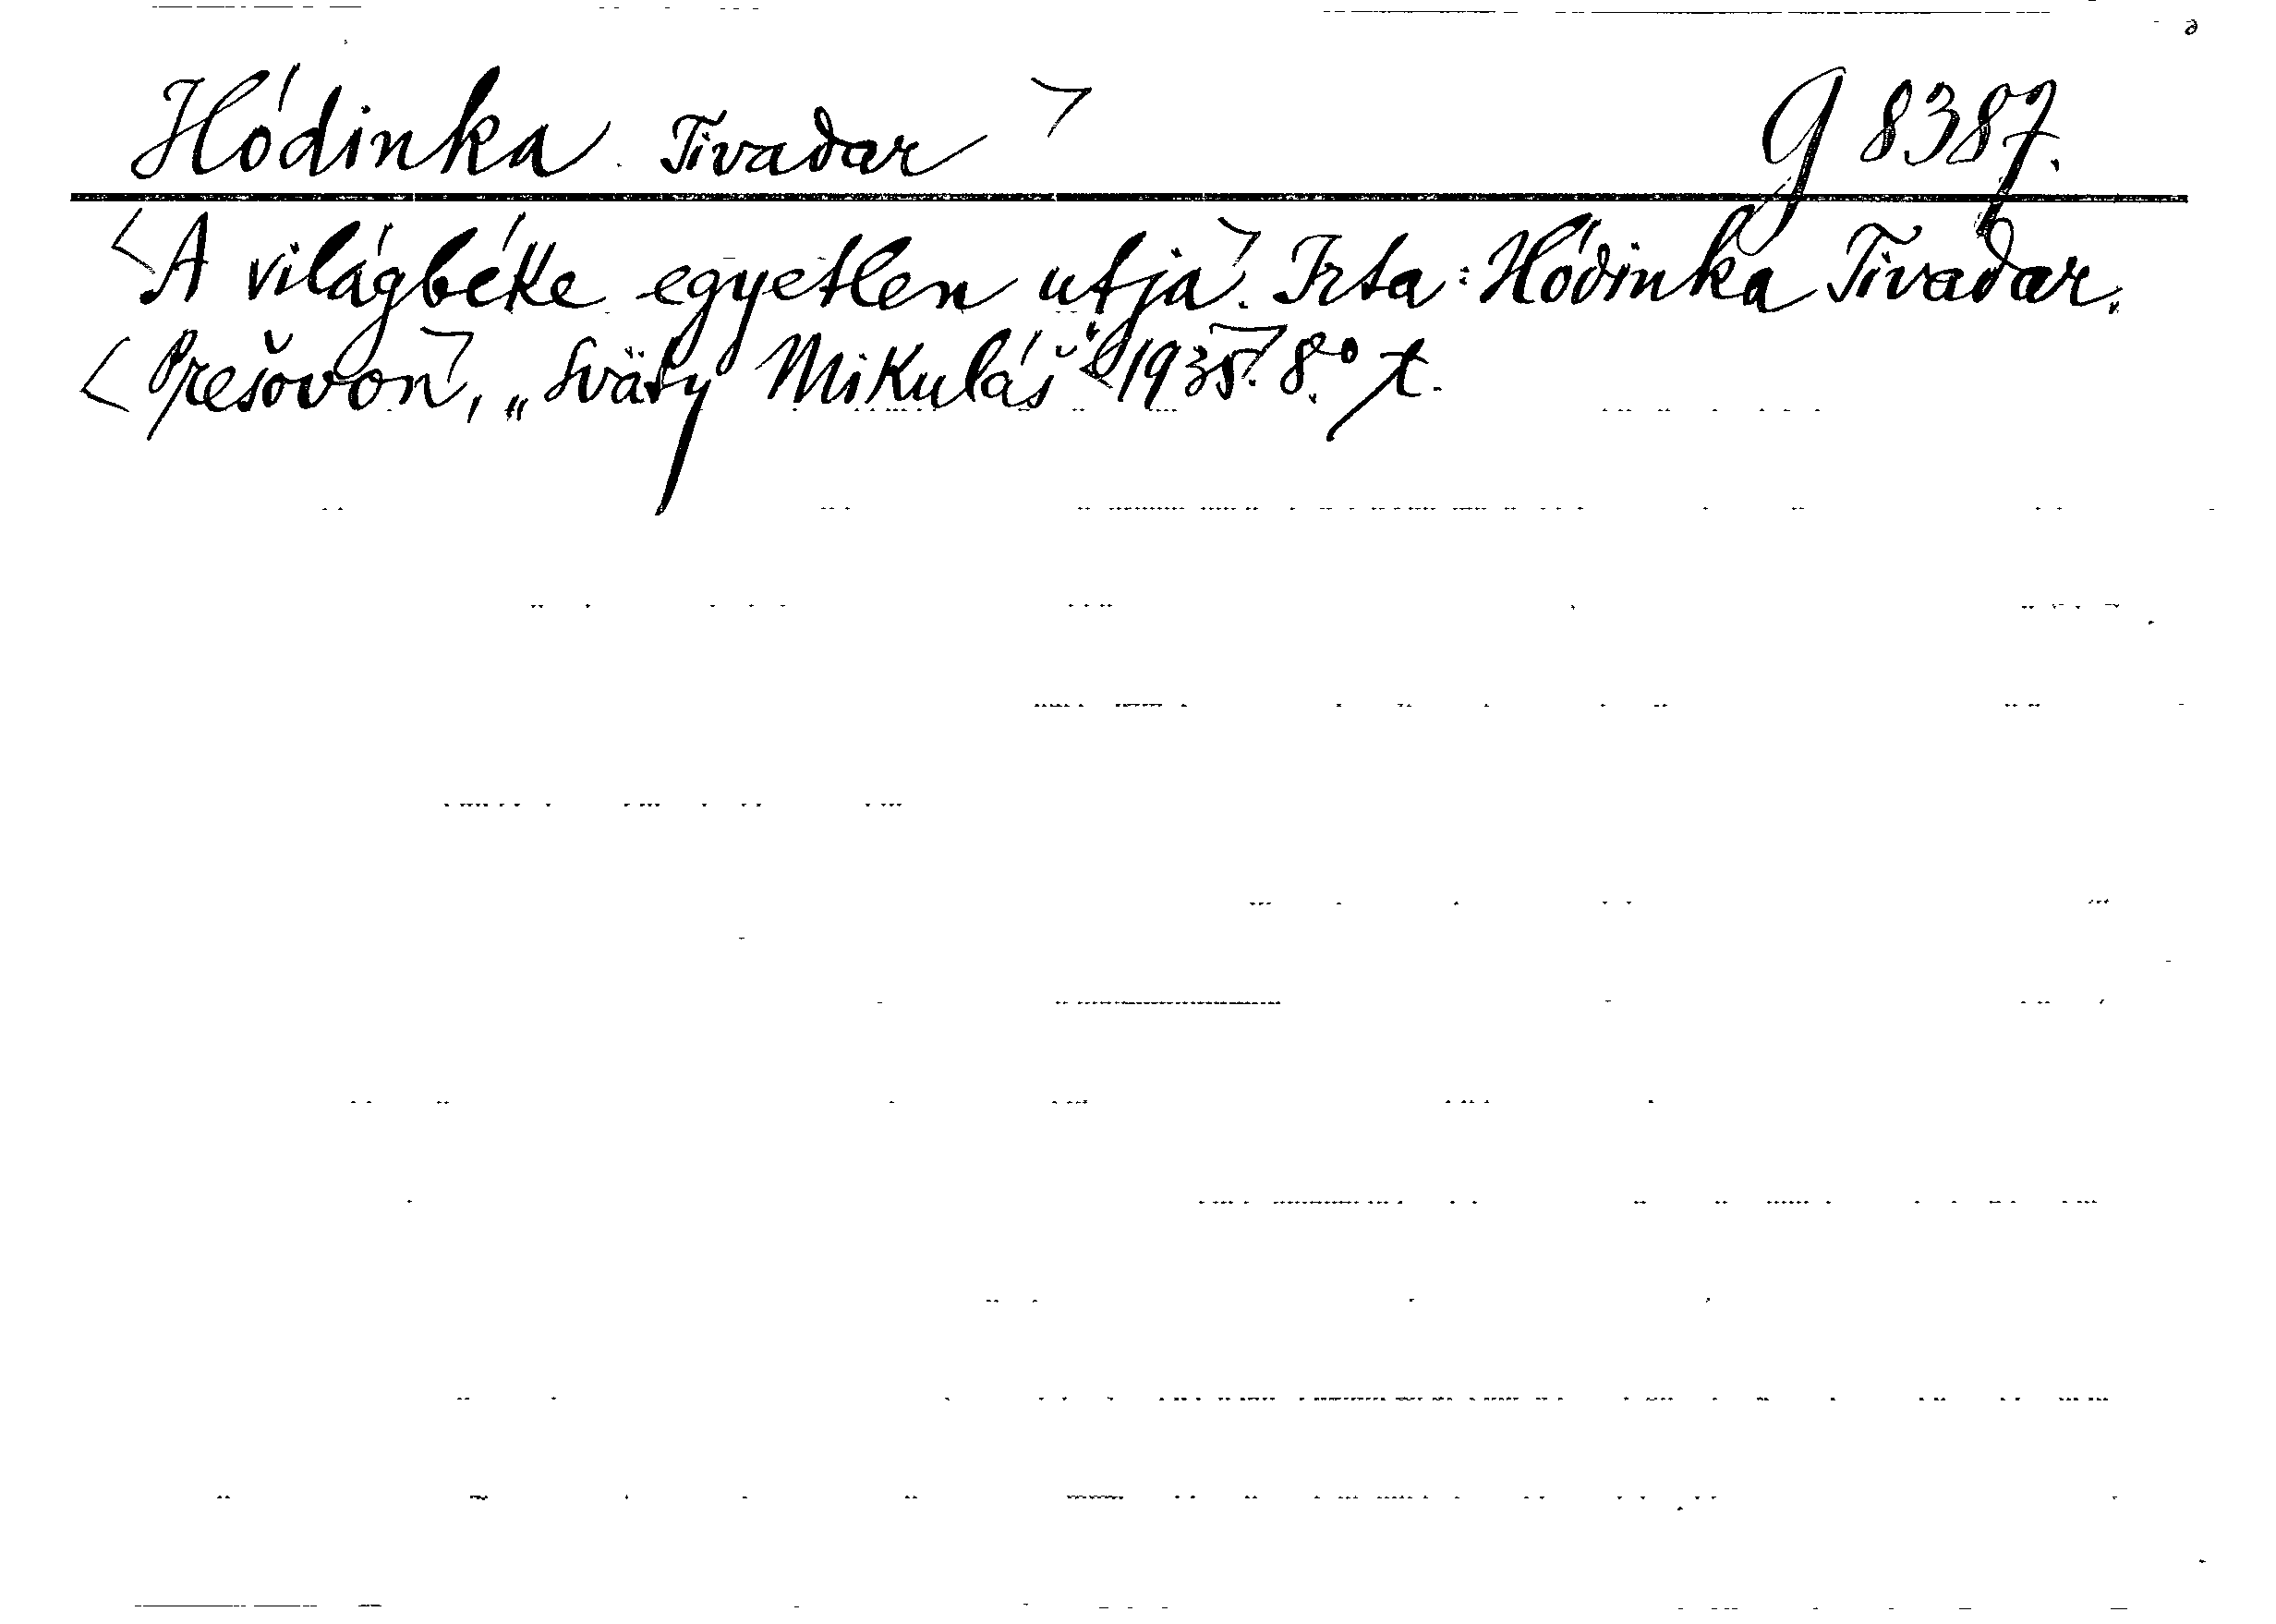 Hódinka Tivadar G 8387.
A világbéke egyetlen utja. Irta: Hódinka Tivadar.
Prešovon, „Sväty Mikuláš" 1935. 8.° t.